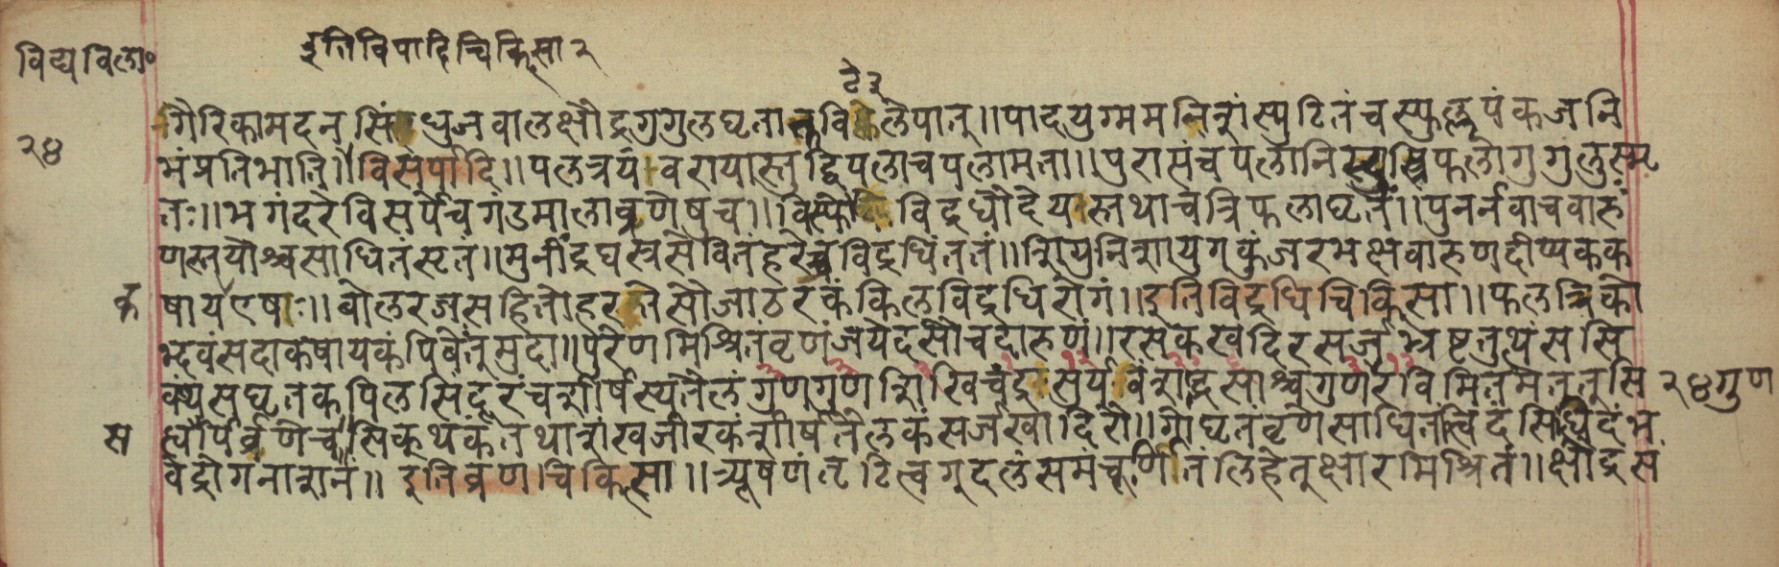 विद्यविला॰
इतिविपादिचिकित्सा२
टे३
२४
गैरिकामदनसिंधुजवालक्षौद्रगुगुलघृता विलेपात्॥पादयुग्ममलिनांस्फुटितंचस्फुल्लपंकजनि
भंप्रतिभाति॥विसर्पादि॥पलत्रयंवरायास्तुद्विपलाचपलामता॥पुरासंचपलानि त्रिफलागुगुलुस्मृ
तः॥भगंदरेविसर्पेचगंडमालाव्रणेषुच॥विस्फोटेविद्रधौदेयास्तथाचत्रिफलाघृतं॥पुनर्नवाचवारु
णस्तयोश्चसाधितंसृतं॥मुनींद्रघस्रसेवितंहरेच्चविद्रधिंततं॥शिग्रुनिशायुगकुंजरभक्षवारुणदीप्यकक
क
षायएषः॥बोलरजसहितोहरतेसौजाठरकंकिलविद्रधिरोगं॥इतिविद्रधिचिकित्सा॥फलत्रिको
भ्दवंसदाकषायकंपिवेत्तुमुदा॥पुरेणमिश्रितंवृणंजयेदसौचदारुणं॥रसेकखदिरसर्जभृष्टतुथंससि
क्थंसघृतकपिलसिंदूरंचशीर्षस्यतैलंगुणगुण द्रसाश्चगुणरविमितमेतत्तुसि
२४गुण
स
ह्यौपर्व्रणेच॥सिकुथकंतथाशंखजीरकंशीर्षतैलकंसर्जखादिरो॥गोघृतंवृणेसाधितंत्विदंसिधिदंभ
वेद्रोगनाशनं॥इतिव्रणचिकित्सा॥त्र्यूषणंतृटित्वगुदलंसमंचूर्णितंलिहेतुक्षारमिश्रितं॥क्षौद्रसं